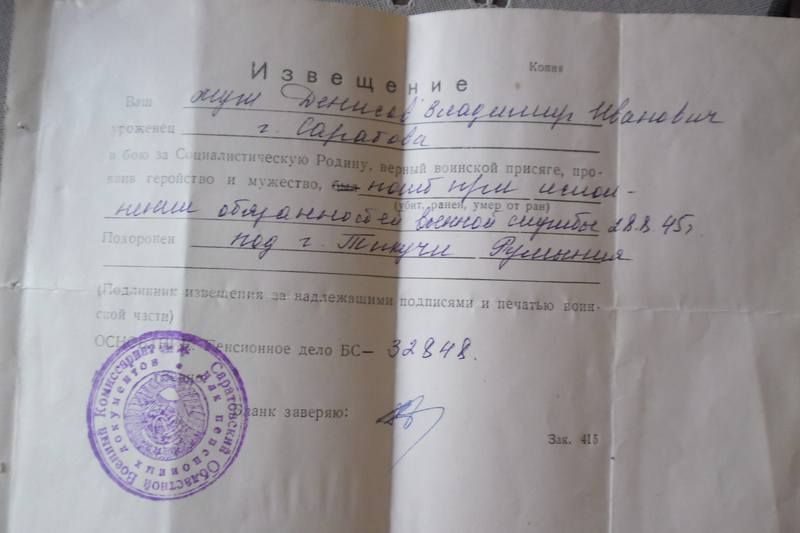 Копия
Извещение
Ваш муж Денисов Владимир Иванович
уроженец г. Саратова
в бою за Социалистическую Родину, верный воинской присяге, про-
явив геройство и мужество, был погиб при испол-
(убит, ранен, умер от ран)
нении обязанностей военной службы 28.8.45г.
Похоронен под г. Текучи Румыния
(Подлинник извещения за надлежащими подписями и печатью воин-
ской части)
Пенсионное дело БС— 32848.
Бланк заверяю:
Зак. 415
Саратовский Областной Военный Комиссариат
для пенсионных документов